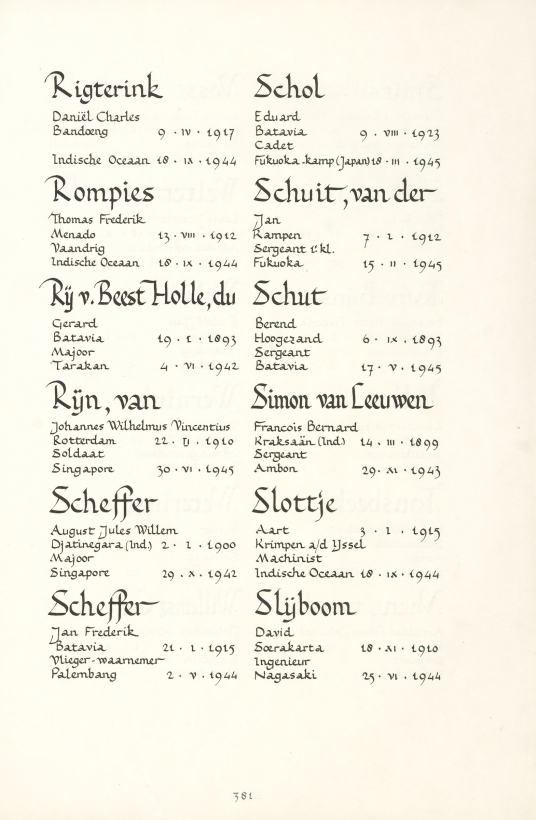 Rigterink
Daniël Charles
Bandoeng 9 · IV · 1917
Indische Oceaan 18 · IX · 1944
Rompies
Thomas Frederik
Menado 13 · VIII · 1912
Vaandrig
Indische Oceaan 18 · IX · 1944
Rÿ v. Beest Holle, du
Gerard
Batavia 19 · I · 1893
Majoor
Tarakan 4 · VI · 1942
Rÿn, van
Johannes Wilhelmus Vincentius
Rotterdam 22 · II · 1910
Soldaat
Singapore 30 · VI · 1945
Scheffer
August Jules Willem
Djatinegara (Ind.) 2 · I · 1900
Majoor
Singapore 29 · X · 1942
Scheffer
Jan Frederik
Batavia 21 · I · 1915
Vlieger-waarnemer
Palembang 2 · V · 1944
Schol
Eduard
Batavia 9 · VIII · 1923
Cadet
Fukuoka-kamp (Japan) 18 · III · 1945
Schuit, van der
Jan
Kampen 7 · I · 1912
Sergeant 1e kl.
Fukuoka 15 · II · 1945
Schut
Berend
Hoogezand 6 · IX · 1893
Sergeant
Batavia 17 · V · 1945
Simon van Leeuwen
Francois Bernard
Kraksaän (Ind.) 14 · III · 1899
Sergeant
Ambon 29 · XI · 1943
Slottje
Aart 3 · I · 1915
Krimpen a/d IJssel
Machinist
Indische Oceaan 18 · IX · 1944
Slÿboom
David
Soerakarta 18 · XI · 1910
Ingenieur
Nagasaki 25 · VI · 1944
381